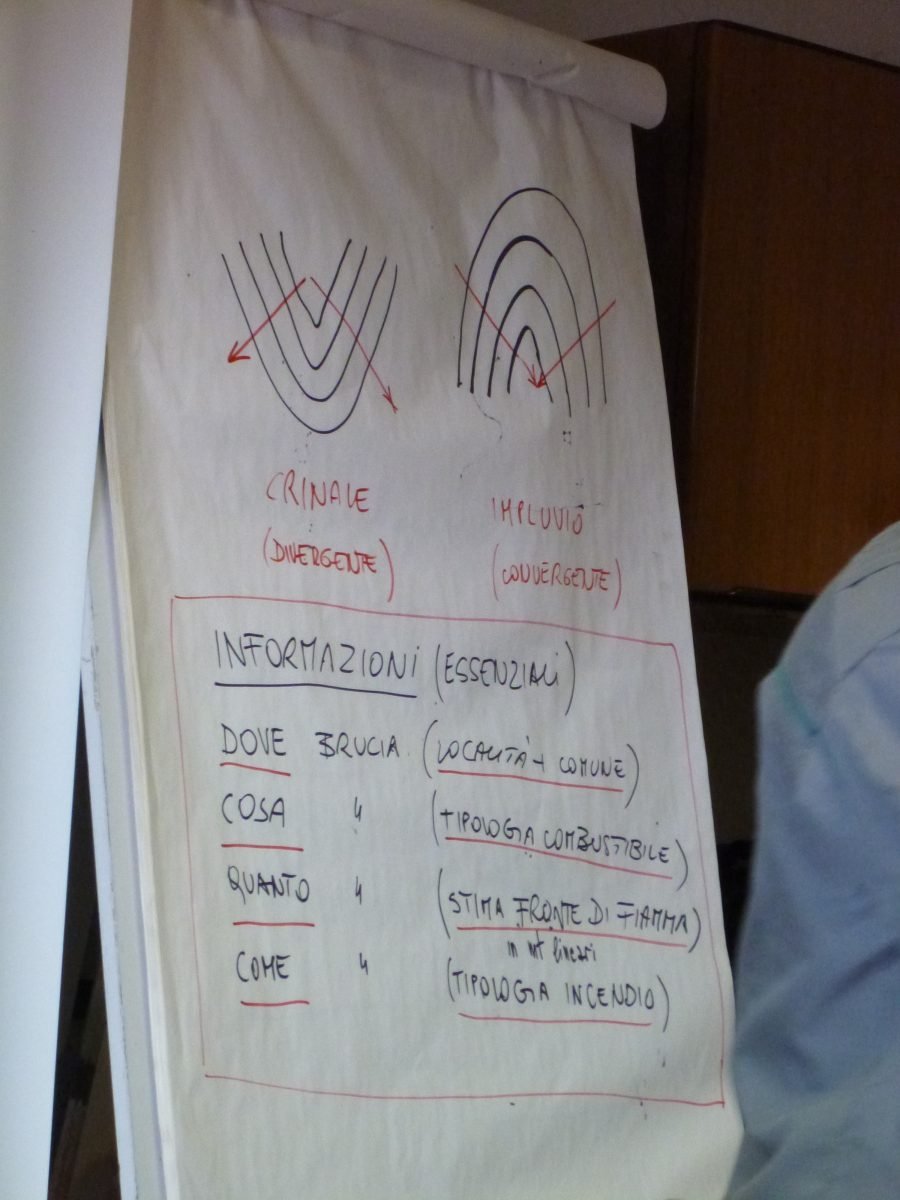 CRINALE
(DIVERGENTE)
IMPLUVIO
(CONVERGENTE)
INFORMAZIONI (ESSENZIALI)
DOVE BRUCIA (LOCALITÀ + COMUNE)
COSA " (TIPOLOGIA COMBUSTIBILE)
QUANTO " (STIMA FRONTE DI FIAMMA)
in mt lineari
COME " (TIPOLOGIA INCENDIO)